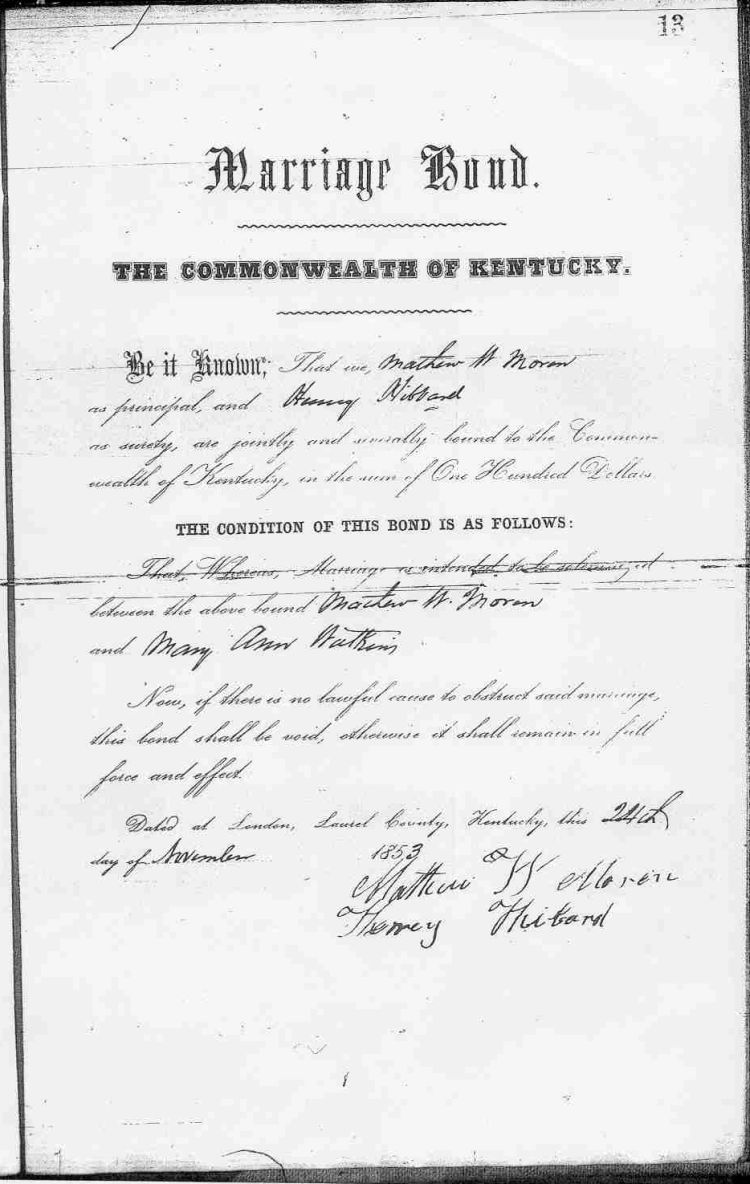 13
Marriage Bond.
THE COMMONWEALTH OF KENTUCKY.
Be it Known, That we, Mathew W Moren
as principal, and Henry Hibbard
as surety, are jointly and severally bound to the Common-
wealth of Kentucky, in the sum of One Hundred Dollars
THE CONDITION OF THIS BOND IS AS FOLLOWS:
That, Whereas, Marriage is intended to be solemnized
between the above bound Mathew W. Moren
and Mary Ann Watkins
Now, if there is no lawful cause to obstruct said marriage,
this bond shall be void, otherwise it shall remain in full
force and effect.
Dated at London, Laurel County, Kentucky, this 24th
day of November 1853
Mathew W Moren
Henrey Hibard